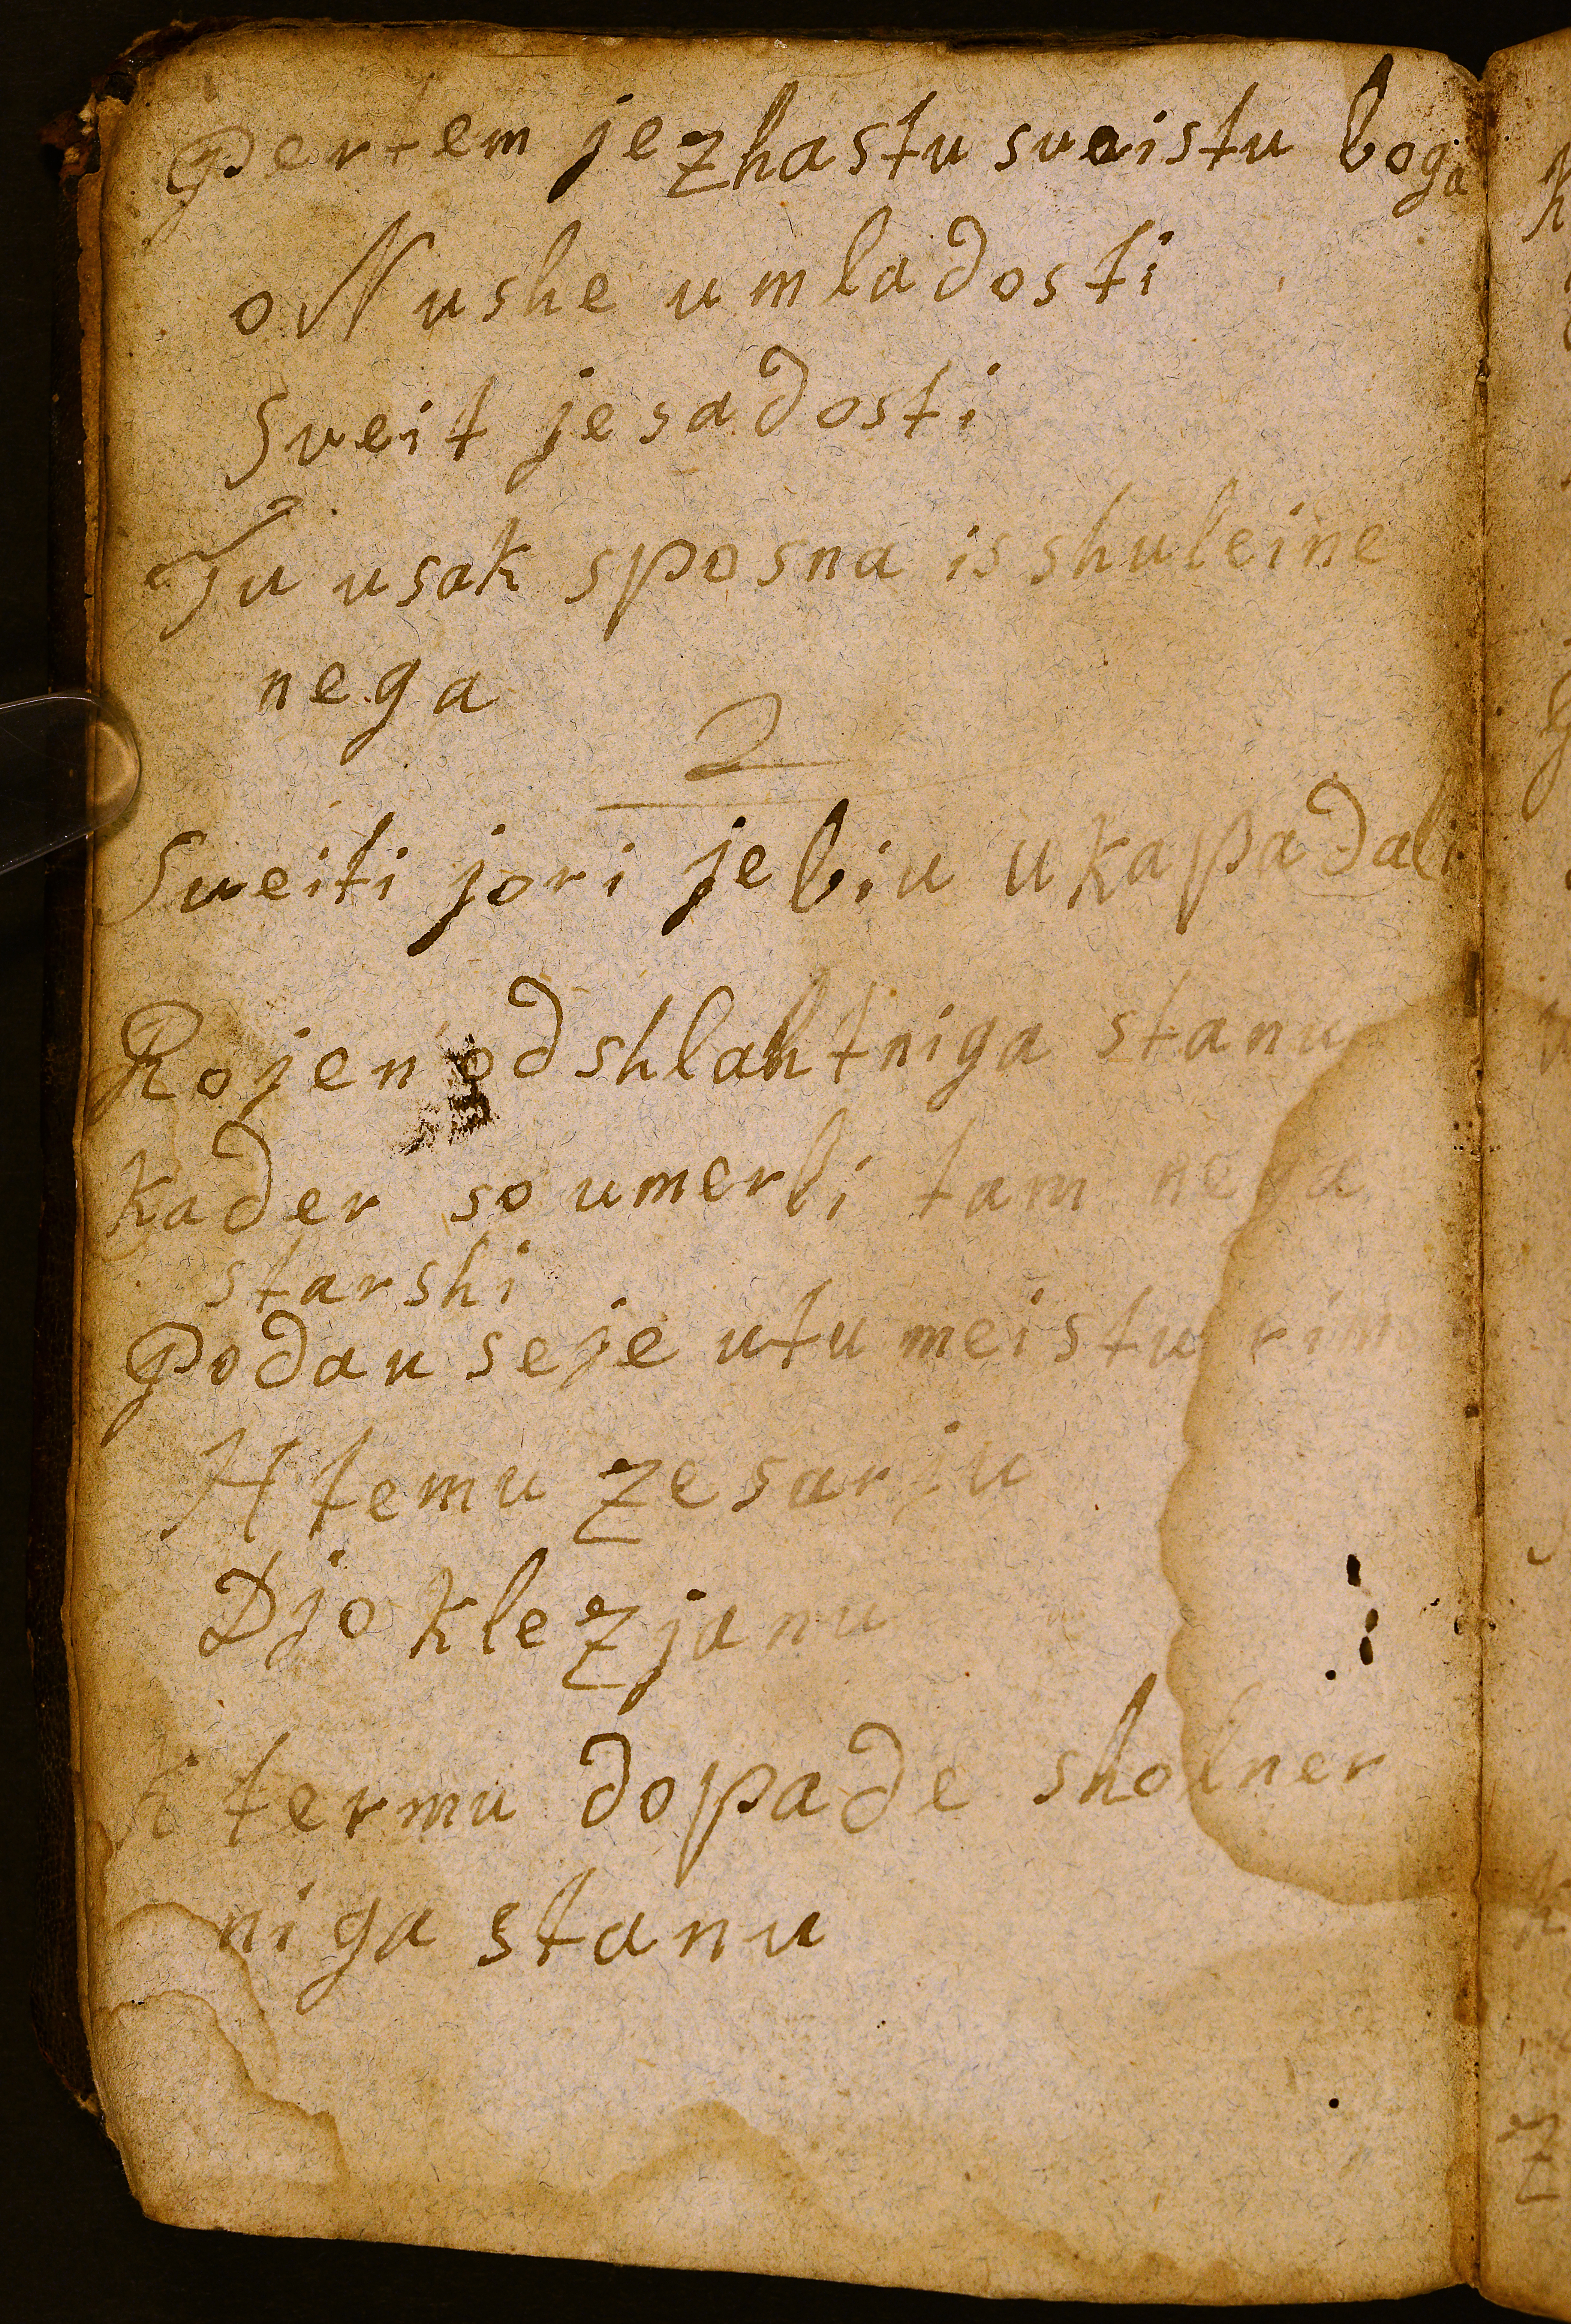 Pertem je zhastu sveistu boga
o Nushe u mladosti
Sveit je sadosti
Tu usak sposna is shuleine
nega
2
Sveiti jori je biu u kapadali
Rojen od shlahtniga stanu
kader so umerli tam nega
starshi
Podau se je utu meistu rim
H temu zesarju
Djoklezjanu
K termu dopade sholner
niga stanu